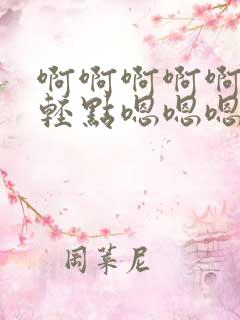 啊啊啊啊啊
輕點嗯嗯嗯
周葉尼